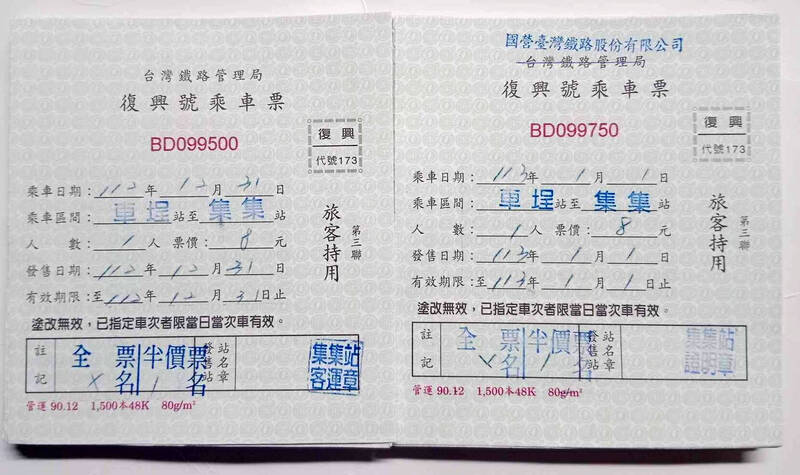 台灣鐵路管理局
復興號乘車票
BD099500
復興
代號173
乘車日期：112年12月31日
乘車區間：車埕站至集集站
人數：1人 票價：8元
發售日期：112年12月31日
有效期限：至112年12月31日止
旅客持用
第三聯
塗改無效，已指定車次者限當日當次車有效。
註記
全票 X名
半價票 1名
發售站
站名章
集集站
客運章
管運 90.12 1,500本48K 80g/m²
國營臺灣鐵路股份有限公司
台灣鐵路管理局
復興號乘車票
BD099750
復興
代號173
乘車日期：113年1月1日
乘車區間：車埕站至集集站
人數：1人 票價：8元
發售日期：113年1月1日
有效期限：至113年1月1日止
旅客持用
第三聯
塗改無效，已指定車次者限當日當次車有效。
註記
全票 名
半價票 1名
發售站
站名章
集集站
證明章
管運 90.12 1,500本48K 80g/m²